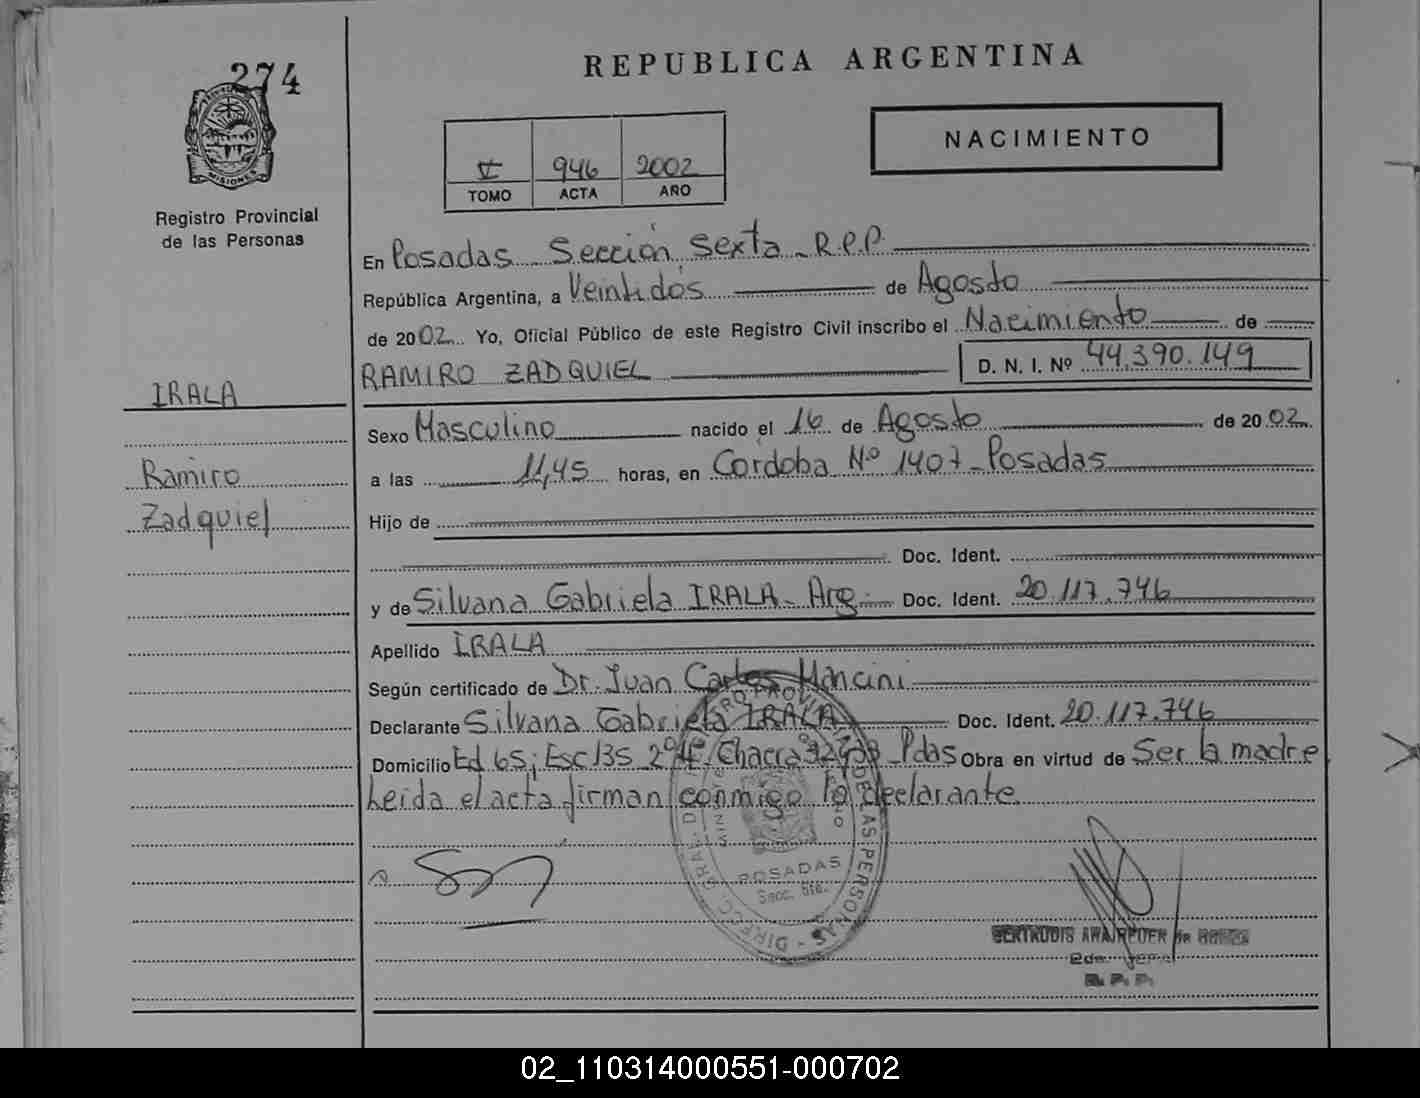 274
REPUBLICA ARGENTINA
MISIONES
Registro Provincial
de las Personas
946 2002
TOMO ACTA AÑO
NACIMIENTO
En Posadas Sección Sexta - R.P.P.
República Argentina, a Veintidós de Agosto
de 2002. Yo, Oficial Público de este Registro Civil inscribo el Nacimiento de
RAMIRO ZADQUIEL D. N. I. Nº 44.390.149
IRALA
Ramiro
Zadquiel
Sexo Masculino nacido el 16 de Agosto de 2002
a las 11,45 horas, en Córdoba Nº 1407 - Posadas
Hijo de
Doc. Ident.
y de Silvana Gabriela IRALA - Arg. Doc. Ident. 20.117.746
Apellido IRALA
Según certificado de Dr. Juan Carlos Mancini
Declarante Silvana Gabriela IRALA Doc. Ident. 20.117.746
Domicilio Ed 65; Esc 135 Chacra Pdas Obra en virtud de Ser la madre
Leida el acta firman conmigo la declarante
POSADAS
Secc. 6ta.
GERTRUDIS de
R. P. P.
02_110314000551-000702